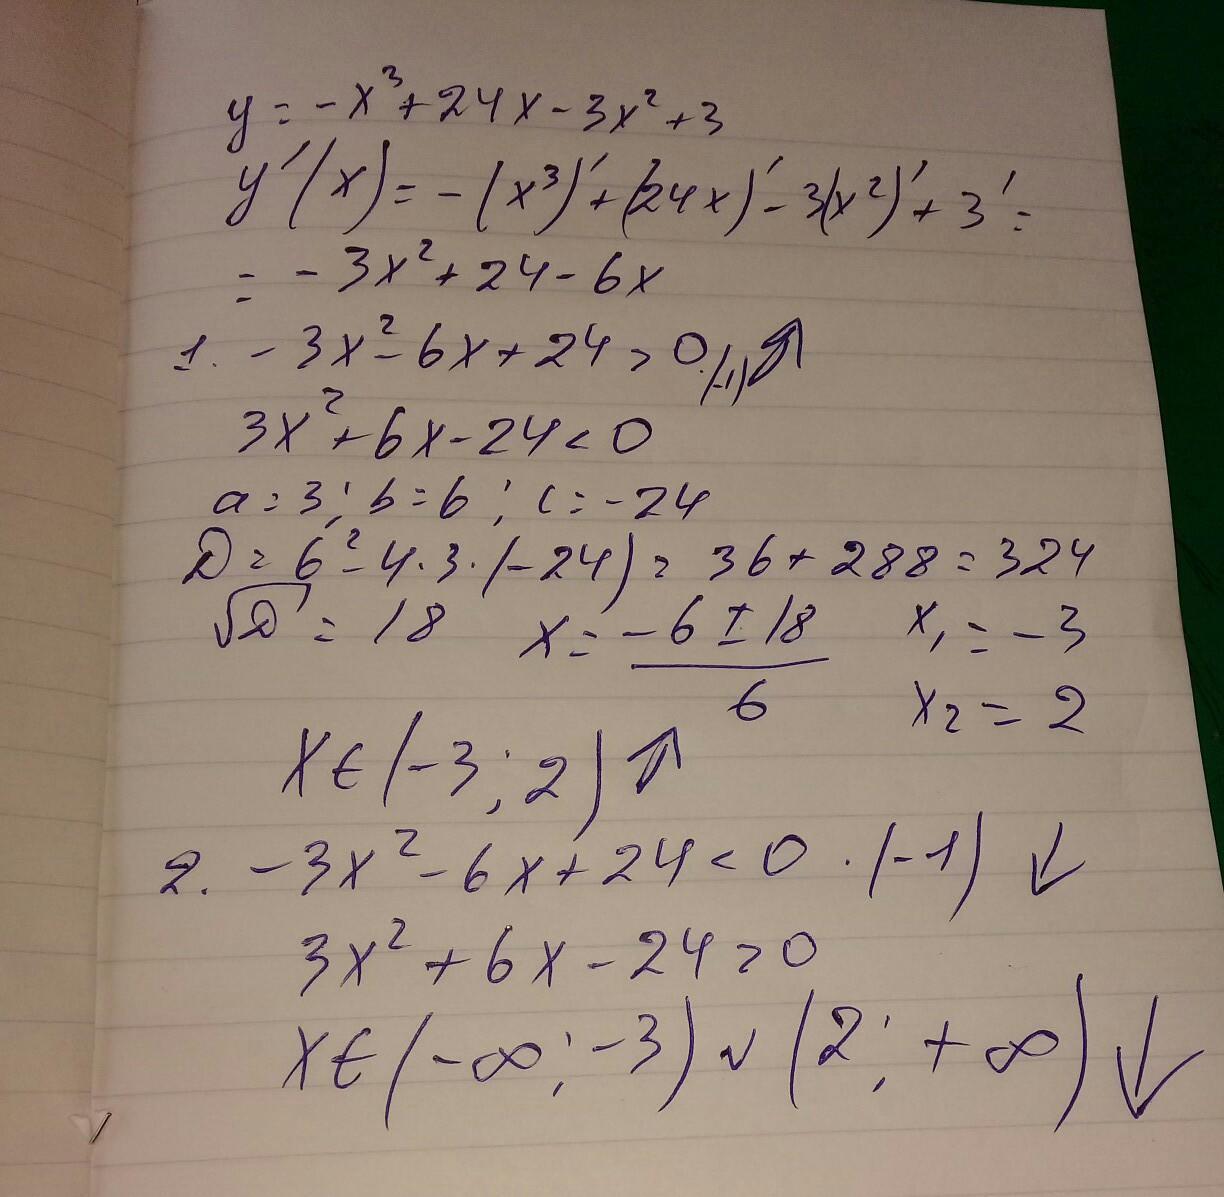 y = -x³ + 24x - 3x² + 3
y'(x) = -(x³)' + (24x)' - 3(x²)' + 3' =
= -3x² + 24 - 6x
1. -3x² - 6x + 24 > 0 ·(-1) ↑
3x² + 6x - 24 < 0
a = 3; b = 6; c = -24
D = 6² - 4·3·(-24) = 36 + 288 = 324
√D = 18 x = (-6 ± 18)/6 x₁ = -3
x₂ = 2
x ∈ (-3; 2) ↑
2. -3x² - 6x + 24 < 0 ·(-1) ↓
3x² + 6x - 24 > 0
x ∈ (-∞; -3) ∪ (2; +∞) ↓